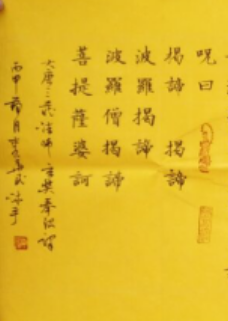 呪曰
揭諦 揭諦
波羅揭諦
波羅僧揭諦
菩提薩婆訶
大唐三藏法師玄奘奉詔譯
丙申